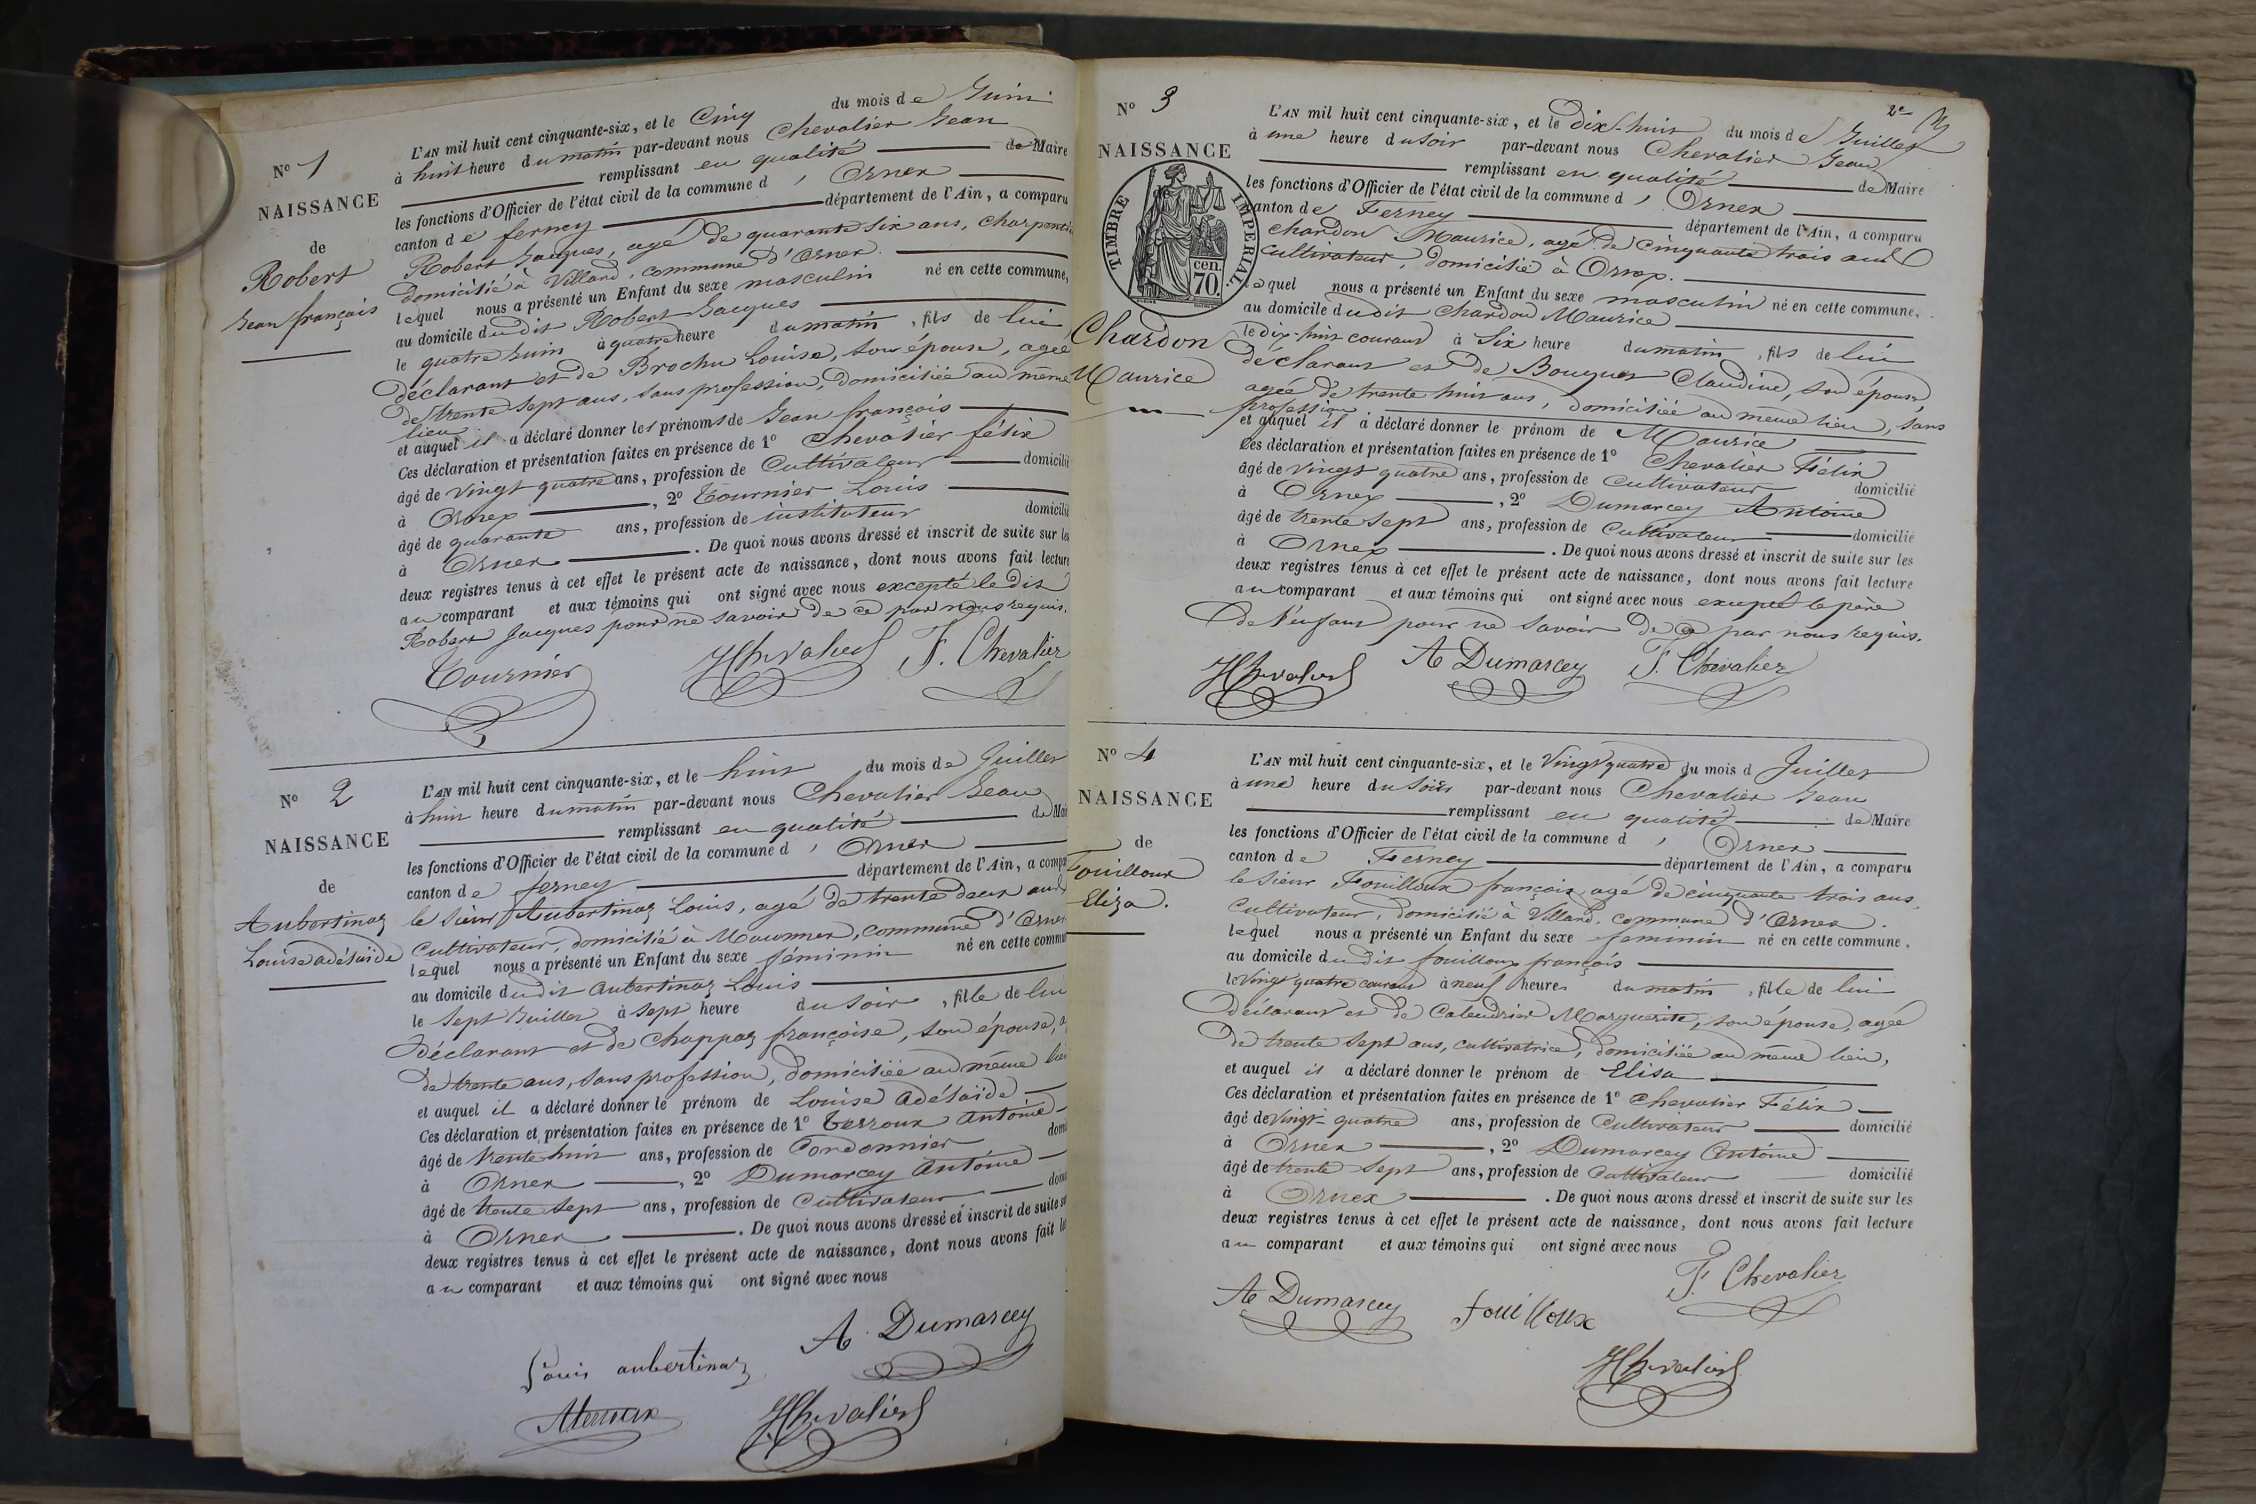 N° 1
NAISSANCE
de
Robert
Jean françois
L'AN mil huit cent cinquante-six, et le Cinq du mois de Juin
à huit heure du matin par-devant nous Chevalier Jean
remplissant en qualité de Maire
les fonctions d'Officier de l'état civil de la commune d' Ornex
canton de ferney département de l'Ain, a comparu
Robert Jacques, agé de quarante six ans, charpentier
domicilié à Villard, commune d'Ornex.
lequel nous a présenté un Enfant du sexe masculin né en cette commune,
au domicile dudit Robert Jacques
le quatre Juin à quatre heure du matin, fils de lui
déclarant et de Brochu Louise, son épouse, agée
de trente sept ans, sans profession, domiciliée au même
lieu
et auquel il a déclaré donner les prénoms de Jean françois
Ces déclaration et présentation faites en présence de 1° Chevalier félix
âgé de vingt quatre ans, profession de Cultivateur domicilié
à Ornex, 2° Tournier Louis
âgé de quarante ans, profession de instituteur domicilié
à Ornex. De quoi nous avons dressé et inscrit de suite sur les
deux registres tenus à cet effet le présent acte de naissance, dont nous avons fait lecture
au comparant et aux témoins qui ont signé avec nous excepté le dit
Robert Jacques pour ne savoir de ce par nous requis.
Tournier JChevalier F. Chevalier
N° 2
NAISSANCE
de
Aubertinaz
Louise adélaïde
L'AN mil huit cent cinquante-six, et le huit du mois de Juillet
à huit heure du matin par-devant nous Chevalier Jean
remplissant en qualité de Mai
les fonctions d'Officier de l'état civil de la commune d' Ornex
canton de ferney département de l'Ain, a compa
le sieur Aubertinaz Louis, agé de trente deux ans
Cultivateur, domicilié à Maconnex, commune d'Ornex
lequel nous a présenté un Enfant du sexe féminin né en cette commu
au domicile dudit Aubertinaz Louis
le sept Juillet à sept heure du soir, fille de lui
déclarant et de Chappaz françoise, son épouse, a
de trente ans, sans profession, domiciliée au même lieu
et auquel il a déclaré donner le prénom de Louise Adélaïde
Ces déclaration et présentation faites en présence de 1° Terroux Antoine
âgé de trente huit ans, profession de Cordonnier domi
à Ornex, 2° Dumarcey Antoine
âgé de trente sept ans, profession de Cultivateur domi
à Ornex. De quoi nous avons dressé et inscrit de suite su
deux registres tenus à cet effet le présent acte de naissance, dont nous avons fait le
au comparant et aux témoins qui ont signé avec nous
A. Dumarcey
Louis aubertinaz
ATerroux JChevalier
2e
N° 3
NAISSANCE
TIMBRE IMPERIAL.
cen.
70.
Chardon
Maurice
L'AN mil huit cent cinquante-six, et le Dix-huit du mois de Juillet
à une heure du soir par-devant nous Chevalier Jean
remplissant en qualité de Maire
les fonctions d'Officier de l'état civil de la commune d' Ornex
canton de Ferney département de l'Ain, a comparu
Chardon Maurice, agé de cinquante trois ans
Cultivateur, domicilié à Ornex.
lequel nous a présenté un Enfant du sexe masculin né en cette commune,
au domicile dudit Chardon Maurice
le dix-huit courant à Six heure du matin, fils de lui
déclarant et de Bouquet Claudine, son épouse,
agée de trente huit ans, domiciliée au même lieu, sans
profession
et auquel il a déclaré donner le prénom de Maurice
Ces déclaration et présentation faites en présence de 1° Chevalier Félix
âgé de vingt quatre ans, profession de Cultivateur domicilié
à Ornex, 2° Dumarcey Antoine
âgé de trente sept ans, profession de Cultivateur domicilié
à Ornex. De quoi nous avons dressé et inscrit de suite sur les
deux registres tenus à cet effet le présent acte de naissance, dont nous avons fait lecture
au comparant et aux témoins qui ont signé avec nous excepté le père
de l'enfant pour ne savoir de ce par nous requis.
JChevalier A Dumarcey F. Chevalier
N° 4
NAISSANCE
de
Fouilloux
Eliza.
L'AN mil huit cent cinquante-six, et le Vingt quatre du mois d Juillet
à une heure du soir par-devant nous Chevalier Jean
remplissant en qualité de Maire
les fonctions d'Officier de l'état civil de la commune d' Ornex
canton de Ferney département de l'Ain, a comparu
le sieur Fouilloux françois agé de cinquante trois ans,
Cultivateur, domicilié à Villard, commune d'Ornex.
lequel nous a présenté un Enfant du sexe feminin né en cette commune.
au domicile dudit fouilloux françois
le vingt quatre courant à neuf heures du matin, fille de lui
déclarant et de Calendrier Marguerite, son épouse, agée
de trente sept ans, cultivatrice, domiciliée au même lieu,
et auquel il a déclaré donner le prénom de Elisa
Ces déclaration et présentation faites en présence de 1° Chevalier Félix
âgé de Vingt-quatre ans, profession de Cultivateur domicilié
à Ornex, 2° Dumarcey Antoine
âgé de trente sept ans, profession de Cultivateur domicilié
à Ornex. De quoi nous avons dressé et inscrit de suite sur les
deux registres tenus à cet effet le présent acte de naissance, dont nous avons fait lecture
au comparant et aux témoins qui ont signé avec nous
F. Chevalier
A Dumarcey fouilloux
JChevalier